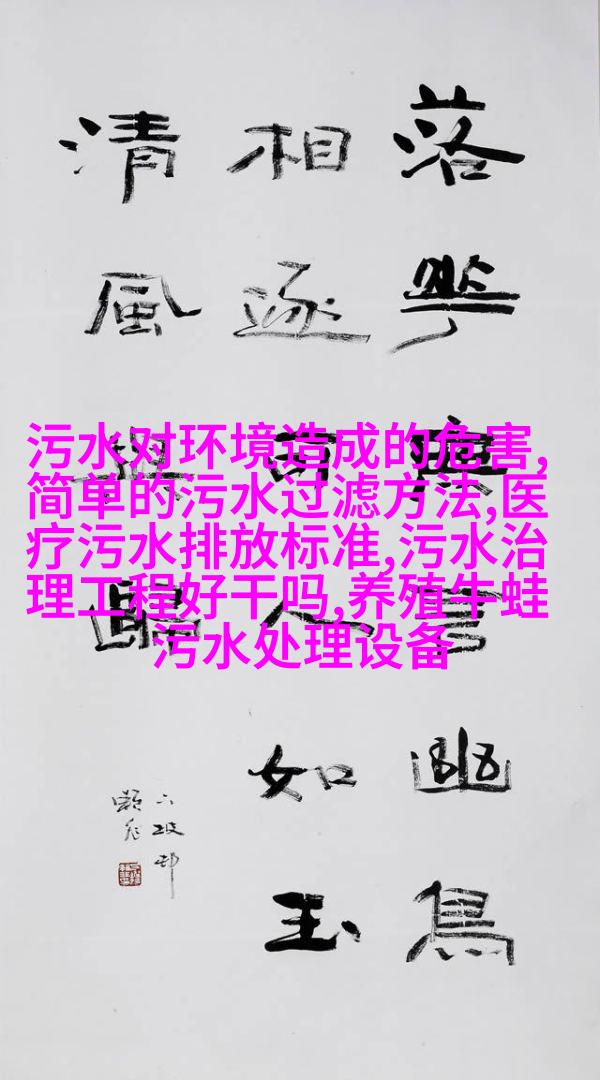 落華無言幽鳥
相逐可人如玉
清風與歸
污水对环境造成的危害,
简单的污水过滤方法,医
疗污水排放标准,污水治
理工程好干吗,养殖牛蛙
污水处理设备